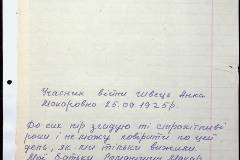 Учасник війни швець Анна
Макаровна 25.09.1925р.
До сих пір згадую ті страхітливі
роки і не можу повірити по цей
день, як ми тільки вижили.
Мої батьки Макар